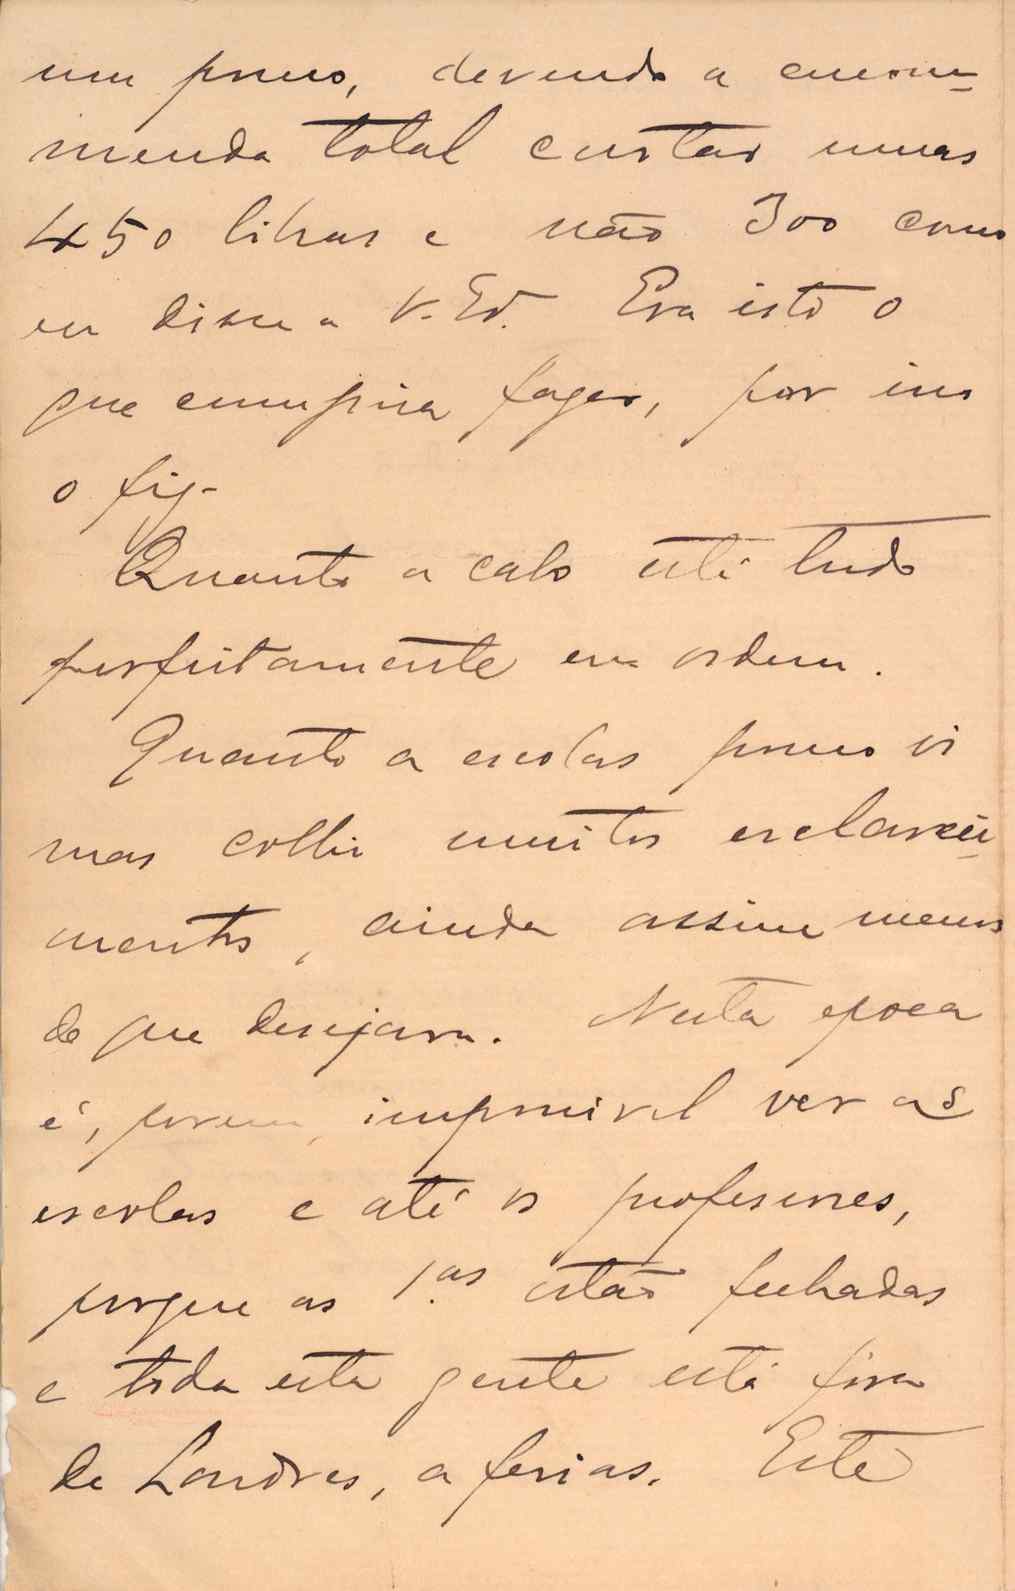 um pouco, devendo a encom-
menda total custar umas
450 libras e não 300 como
eu disse a V. Ex.ª. Era isto o
que cumpria fazer, por isso
o fiz.
Quanto a cabo está tudo
perfeitamente em ordem.
Quanto a escolas pouco vi
mas colhi muitos esclareci-
mentos, ainda assim menos
do que desejava. Nesta epoca
é, porem, impossivel ver as
escolas e até os professores,
porque as 1.as estão fechadas
e toda esta gente está fora
de Londres, a ferias. Este